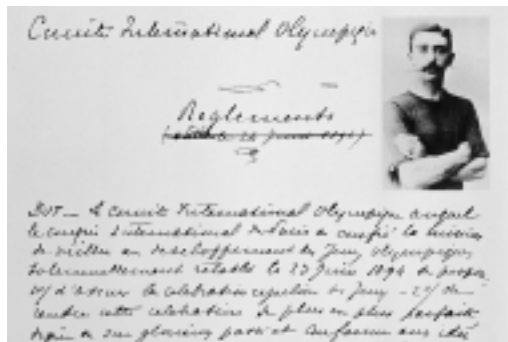 Comité International Olympique
Reglements
BUT _ Le Comité International Olympique auquel
le Congrès International de Paris a confié la mission
de veiller au développement des Jeux Olympiques
solennellement rétablis le 23 Juin 1894 se propose
1º/ d'assurer la célébration régulière des Jeux - 2º/ de
rendre cette célébration de plus en plus parfaite
digne de son glorieux passé et conforme aux idées